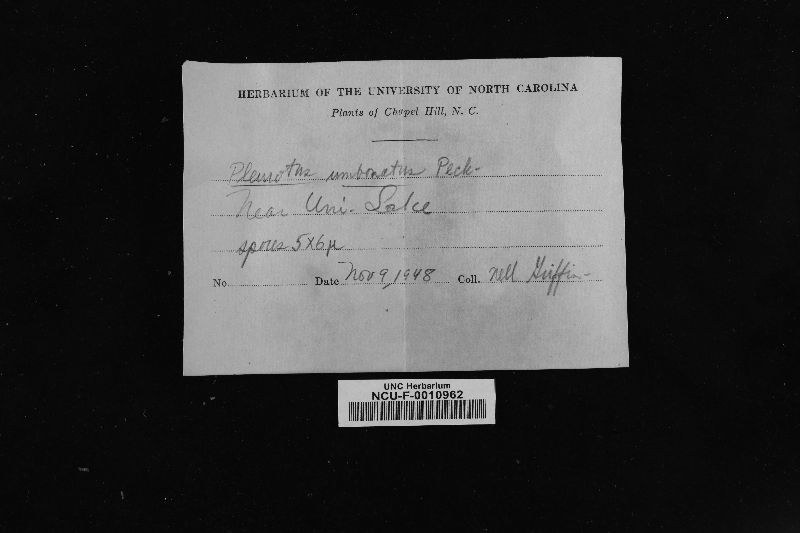 HERBARIUM OF THE UNIVERSITY OF NORTH CAROLINA
Plants of Chapel Hill, N. C.
Pleurotus umbonatus Peck-
Near Uni. Lake
spores 5x6µ
No. Date Nov 9, 1948 Coll. Nell Griffin-
UNC Herbarium
NCU-F-0010962